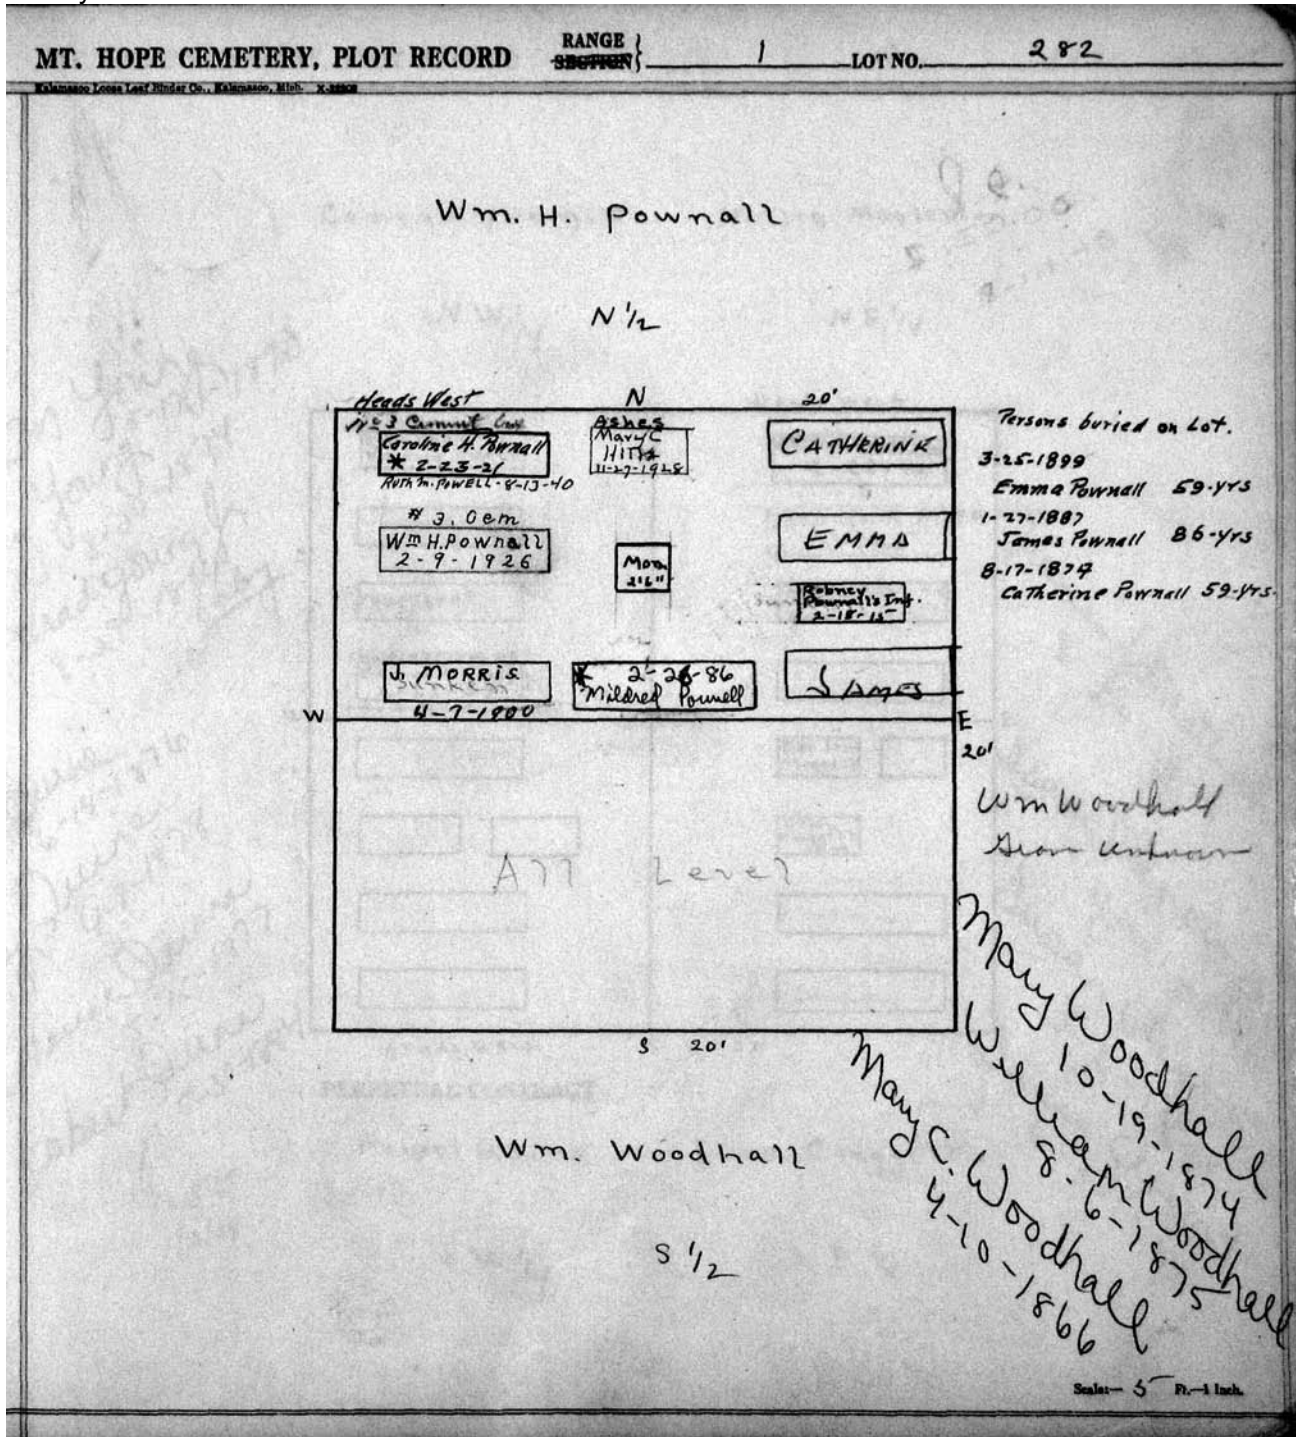 MT. HOPE CEMETERY, PLOT RECORD RANGE SECTION 1 LOT NO. 282
Kalamazoo Loose Leaf Binder Co., Kalamazoo, Mich.
Wm. H. Pownall
N 1/2
Heads West N 20'
No 3 Cement Box
Caroline H. Pownall
* 2-23-21
Ruth M. POWELL - 8-13-40
Ashes
Mary C
11-27-1928
CATHERINE
# 3. Oem
Wm H. Pownall
2-9-1926
Mon.
2'6"
EMMA
Rodney
Pownall's Inf.
2-18-15
J. MORRIS
Sunken
4-7-1900
* 2-26-86
Mildred Pownell
JAMES
W E
20'
Persons buried on Lot.
3-25-1899
Emma Pownall 59-yrs
1-27-1887
James Pownall 86-yrs
8-17-1874
Catherine Pownall 59-yrs.
Wm Woodhall
Grave unknown
All Level
S 20'
Mary Woodhall
10-19-1874
William Woodhall
8-6-1875
Mary C. Woodhall
4-10-1866
Wm. Woodhall
S 1/2
Scale:— 5 Ft.—1 Inch.